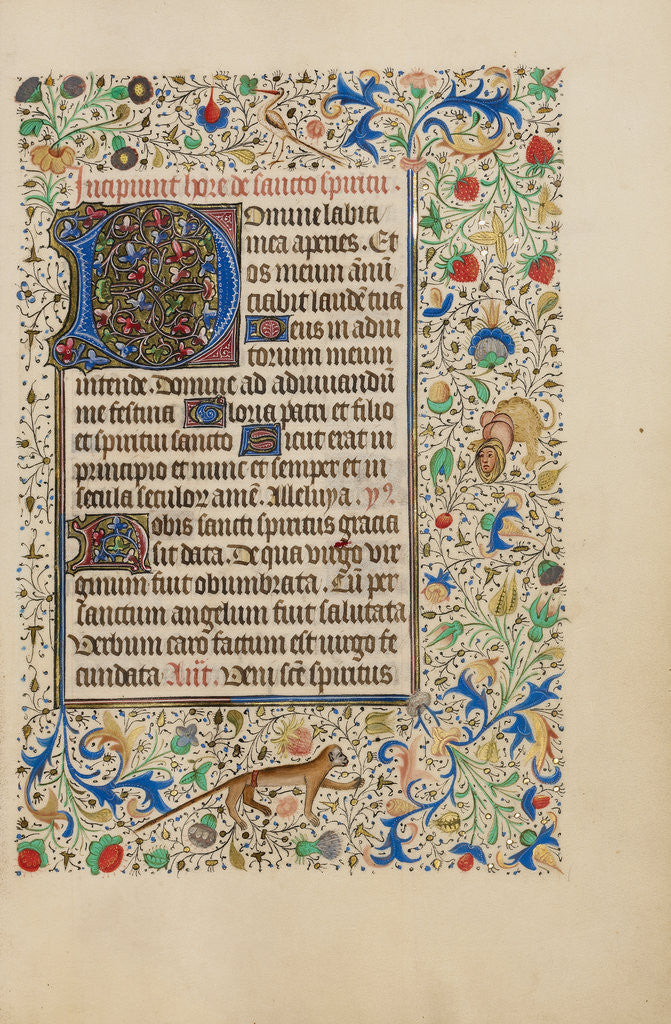 Incipiunt hore de sancto spiritu.
Domine labia
mea aperies. Et
os meum annū
ciabit laudē tuā
Deus in adiu
torium meum
intende. Domine ad adiuuandū
me festina Gloria patri et filio
et spiritui sancto Sicut erat in
principio et nunc et semper et in
secula seculoꝝ amē. Alleluya. yꝰ.
Nobis sancti spiritus gracia
sit data. De qua virgo vir
ginum fuit obumbrata. Cū per
sanctum angelum fuit salutata
Verbum caro factum est uirgo fe
cundata Añt. Veni scē spiritus